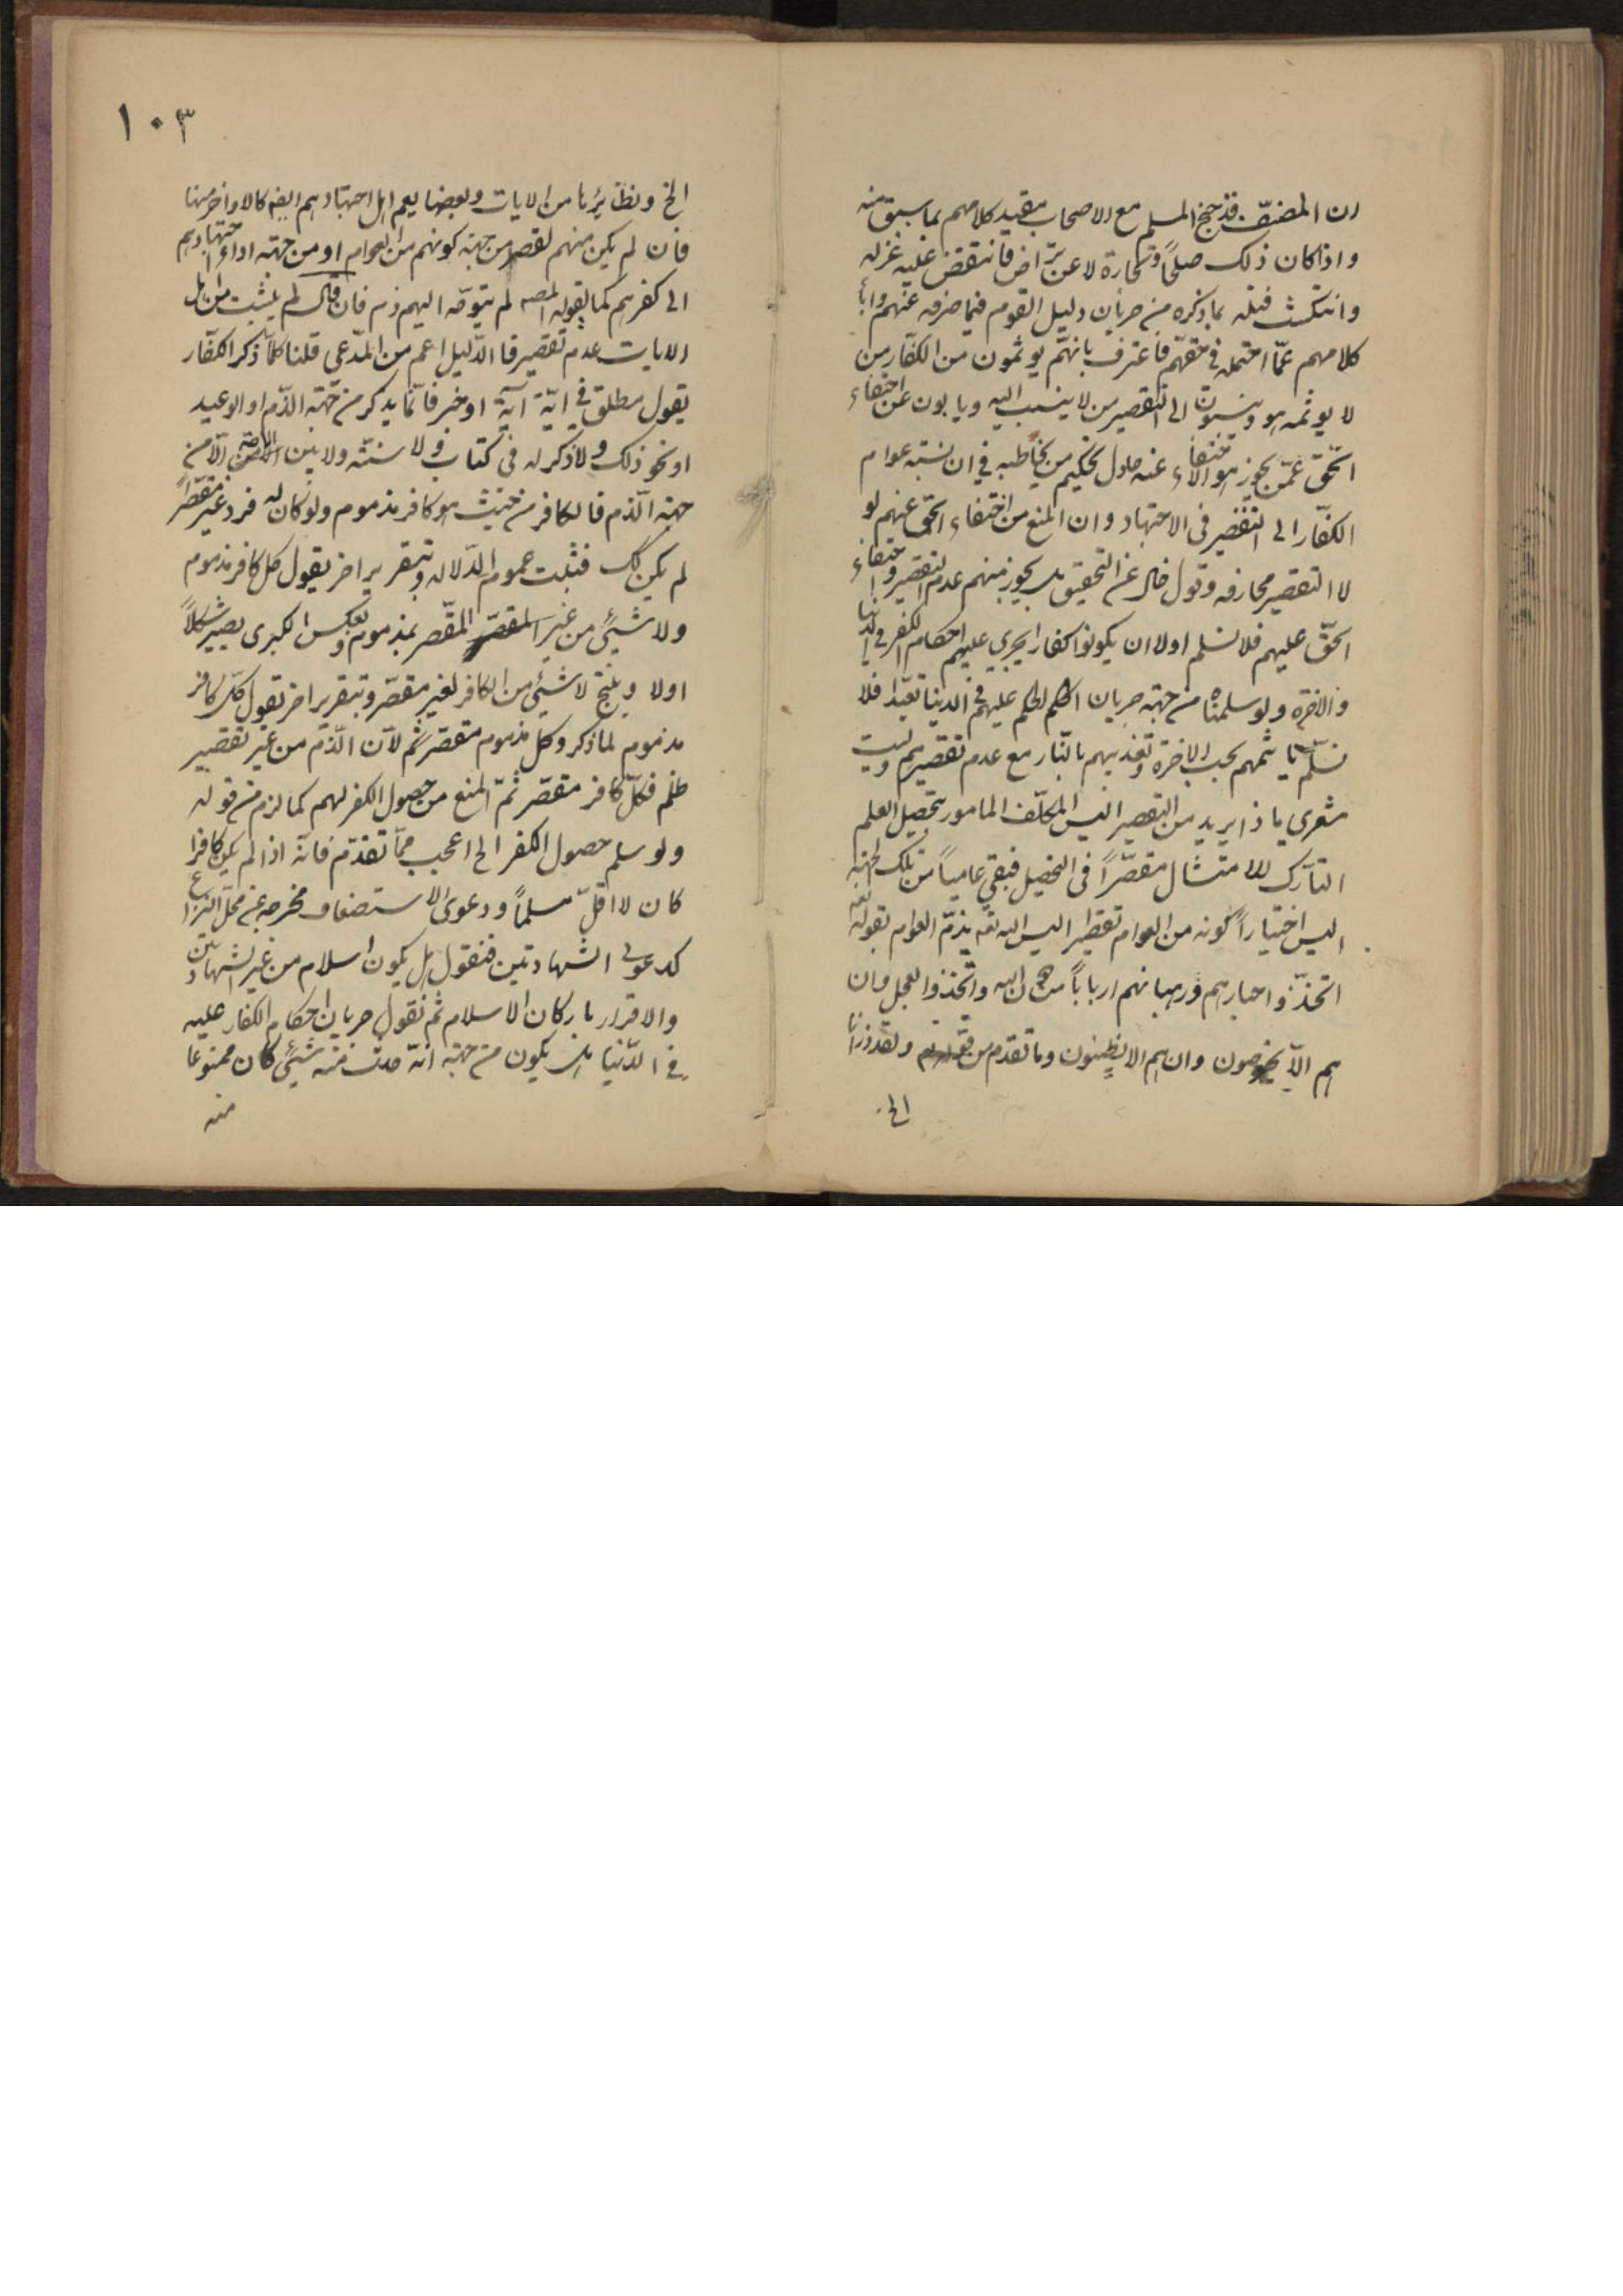 ان المصنّف قد جنح المسلم مع الاصحاب بتقييد كلامهم بما سبق منه
واذا كان ذلك صلحًا وتجارة لا عن تراض فانتقض عليه غزله
وانتكث فتله بما ذكره من جريان دليل القوم فيما صرفه عنهم وابا
كلامهم عمّا احتمله في حقهم فاعترف بانهم يوثمون من الكفّار من
لا يوثمه هو وينسبون الى التقصير من لا ينسب اليه ويابون عن اختفاء
الحق عمّن يجوز هو اختفاء عنه حاول تحكيم من يخاطبه في ان نسبة عوام
الكفّار الى التقصير في الاجتهاد وان المنع من اختفاء الحق عنهم لو
لا التقصير مجازفه وقول خال عن التحقيق بل يجوز منهم عدم التقصير واختفاء
الحقّ عليهم فلا نسلم اولا ان يكونوا كفارا يجري عليهم احكام الكفر في الدنيا
والاخرة ولو سلمناه من جهة جريان الحكم عليهم في الدنيا تعبّدا فلا
نسلّم تاثيمهم بحسب الاخرة وتعذيبهم بالنّار مع عدم تقصيرهم وليت
شعري ماذا يريد من التقصير اليس المكلّف المامور بتحصيل العلم
التارك للامتثال مقصّرًا في التحصيل فبقي عامياً من تلك الجهة
اليس اختياراً كونه من العوام تقصير اليس الله تعه يذمّ العوام بقوله تعه
اتخذوا احبارهم ورهبانهم ارباباً من دون الله واتخذوا العجل وان
هم الّا يخرصون وان هم الا يظنون وما تقدم من قوله ولقد ذرانا
الخ
١٠٣
الخ ونظائرها من الايات وبعضها يعم اهل اجتهادهم ايضه كالاواخر منها
فان لم يكن منهم تقصير من جهة كونهم من العوام او من جهة اداء اجتهادهم
الى كفرهم كما يقوله المصه لم يتوجّه اليهم ذم فان قال لم يثبت من اهل
الايات عدم تقصير فالدّليل اعم من المدّعى قلنا كلّما ذكر الكفّار
بقول مطلق في ايّة آية او خبر فانّما يذكر من جهة الذّم او الوعيد
او نحو ذلك ولا ذكر له في كتاب ولا سنّة ولا بين الّا من
جهة الذم فالكافر من حيث هو كافر مذموم ولو كان له فرد غير مقصّر
لم يكن كك فثبت عموم الدّلاله وبتقرير اخر نقول كل كافر مذموم
ولا شيئ من غير المقصّر بمذموم وبعكس الكبرى يصير شكلاً
اولا وينتج لا شيئ من الكافر لغير مقصّر وبتقرير اخر نقول كلّ كافر
مذموم لما ذكر وكل مذموم مقصّر ثم لانّ الذّم من غير تقصير
ظلم فكلّ كافر مقصّر ثمّ المنع من حصول الكفر لهم كما لزم من قوله
ولو سلم حصول الكفر الخ اعجب ممّا تقدّم فانّه اذا لم يكن كافرا
كان لا اقلّ مسلماً ودعوى الاستضعاف مخرجه عن محلّ النزاع
كدعوى الشهادتين فنقول هل يكون اسلام من غير الشهادتين
والاقرار باركان الاسلام ثم نقول جريان احكام الكفار عليه
في الدّنيا هل يكون من جهة انّه حدث منه شيئ كان ممنوعا
منه